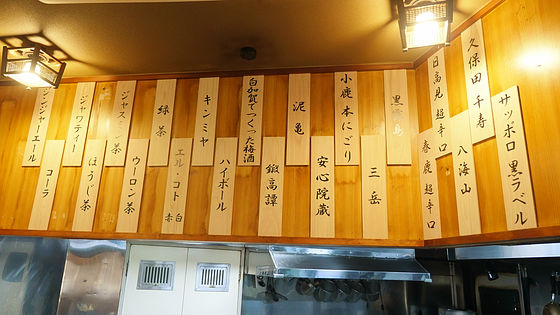 サッポロ 黒ラベル
久保田 千寿
八海山
日高見 超辛口
春鹿 超辛口
黒霧島
三岳
小鹿 本にごり
安心院蔵
泥亀
鍛高譚
白加賀でつくった梅酒
ハイボール
キンミヤ
エル・コト 赤・白
緑茶
ウーロン茶
ジャスミン茶
ほうじ茶
ジャワティー
コーラ
ジンジャーエール